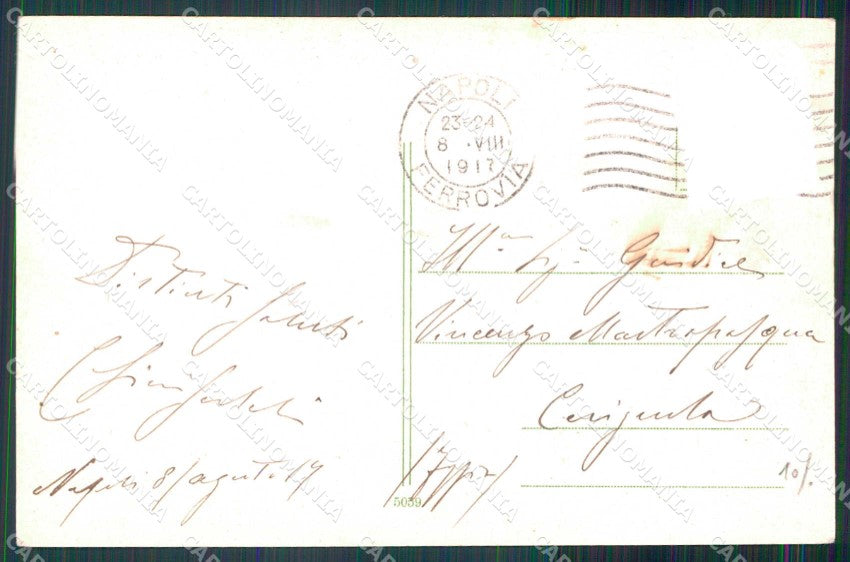 NAPOLI
23-24
8 · VIII
1917
FERROVIA
Ill.mo Sig. Giudice
Vincenzo Mastropasqua
Cerignola
Distinti saluti
Napoli 8/ agosto 17
5059
10/.
CARTOLINOMANIA